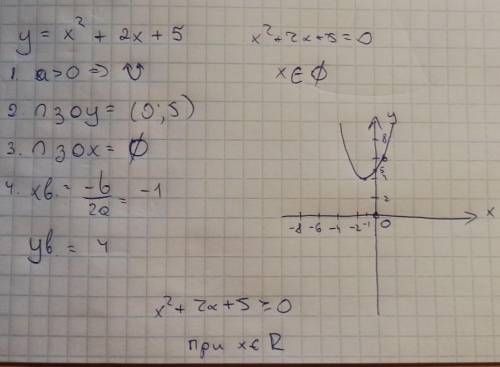 y = x² + 2x + 5
1. a>0 => ∪
2. ∩ з OY = (0; 5)
3. ∩ з OX = ∅
4. xв. = -b/2a = -1
yв. = 4
x² + 2x + 5 = 0
x ∈ ∅
y
8
6
5
4
2
-8 -6 -4 -2 -1 0
x
x² + 2x + 5 ≥ 0
при x ∈ R